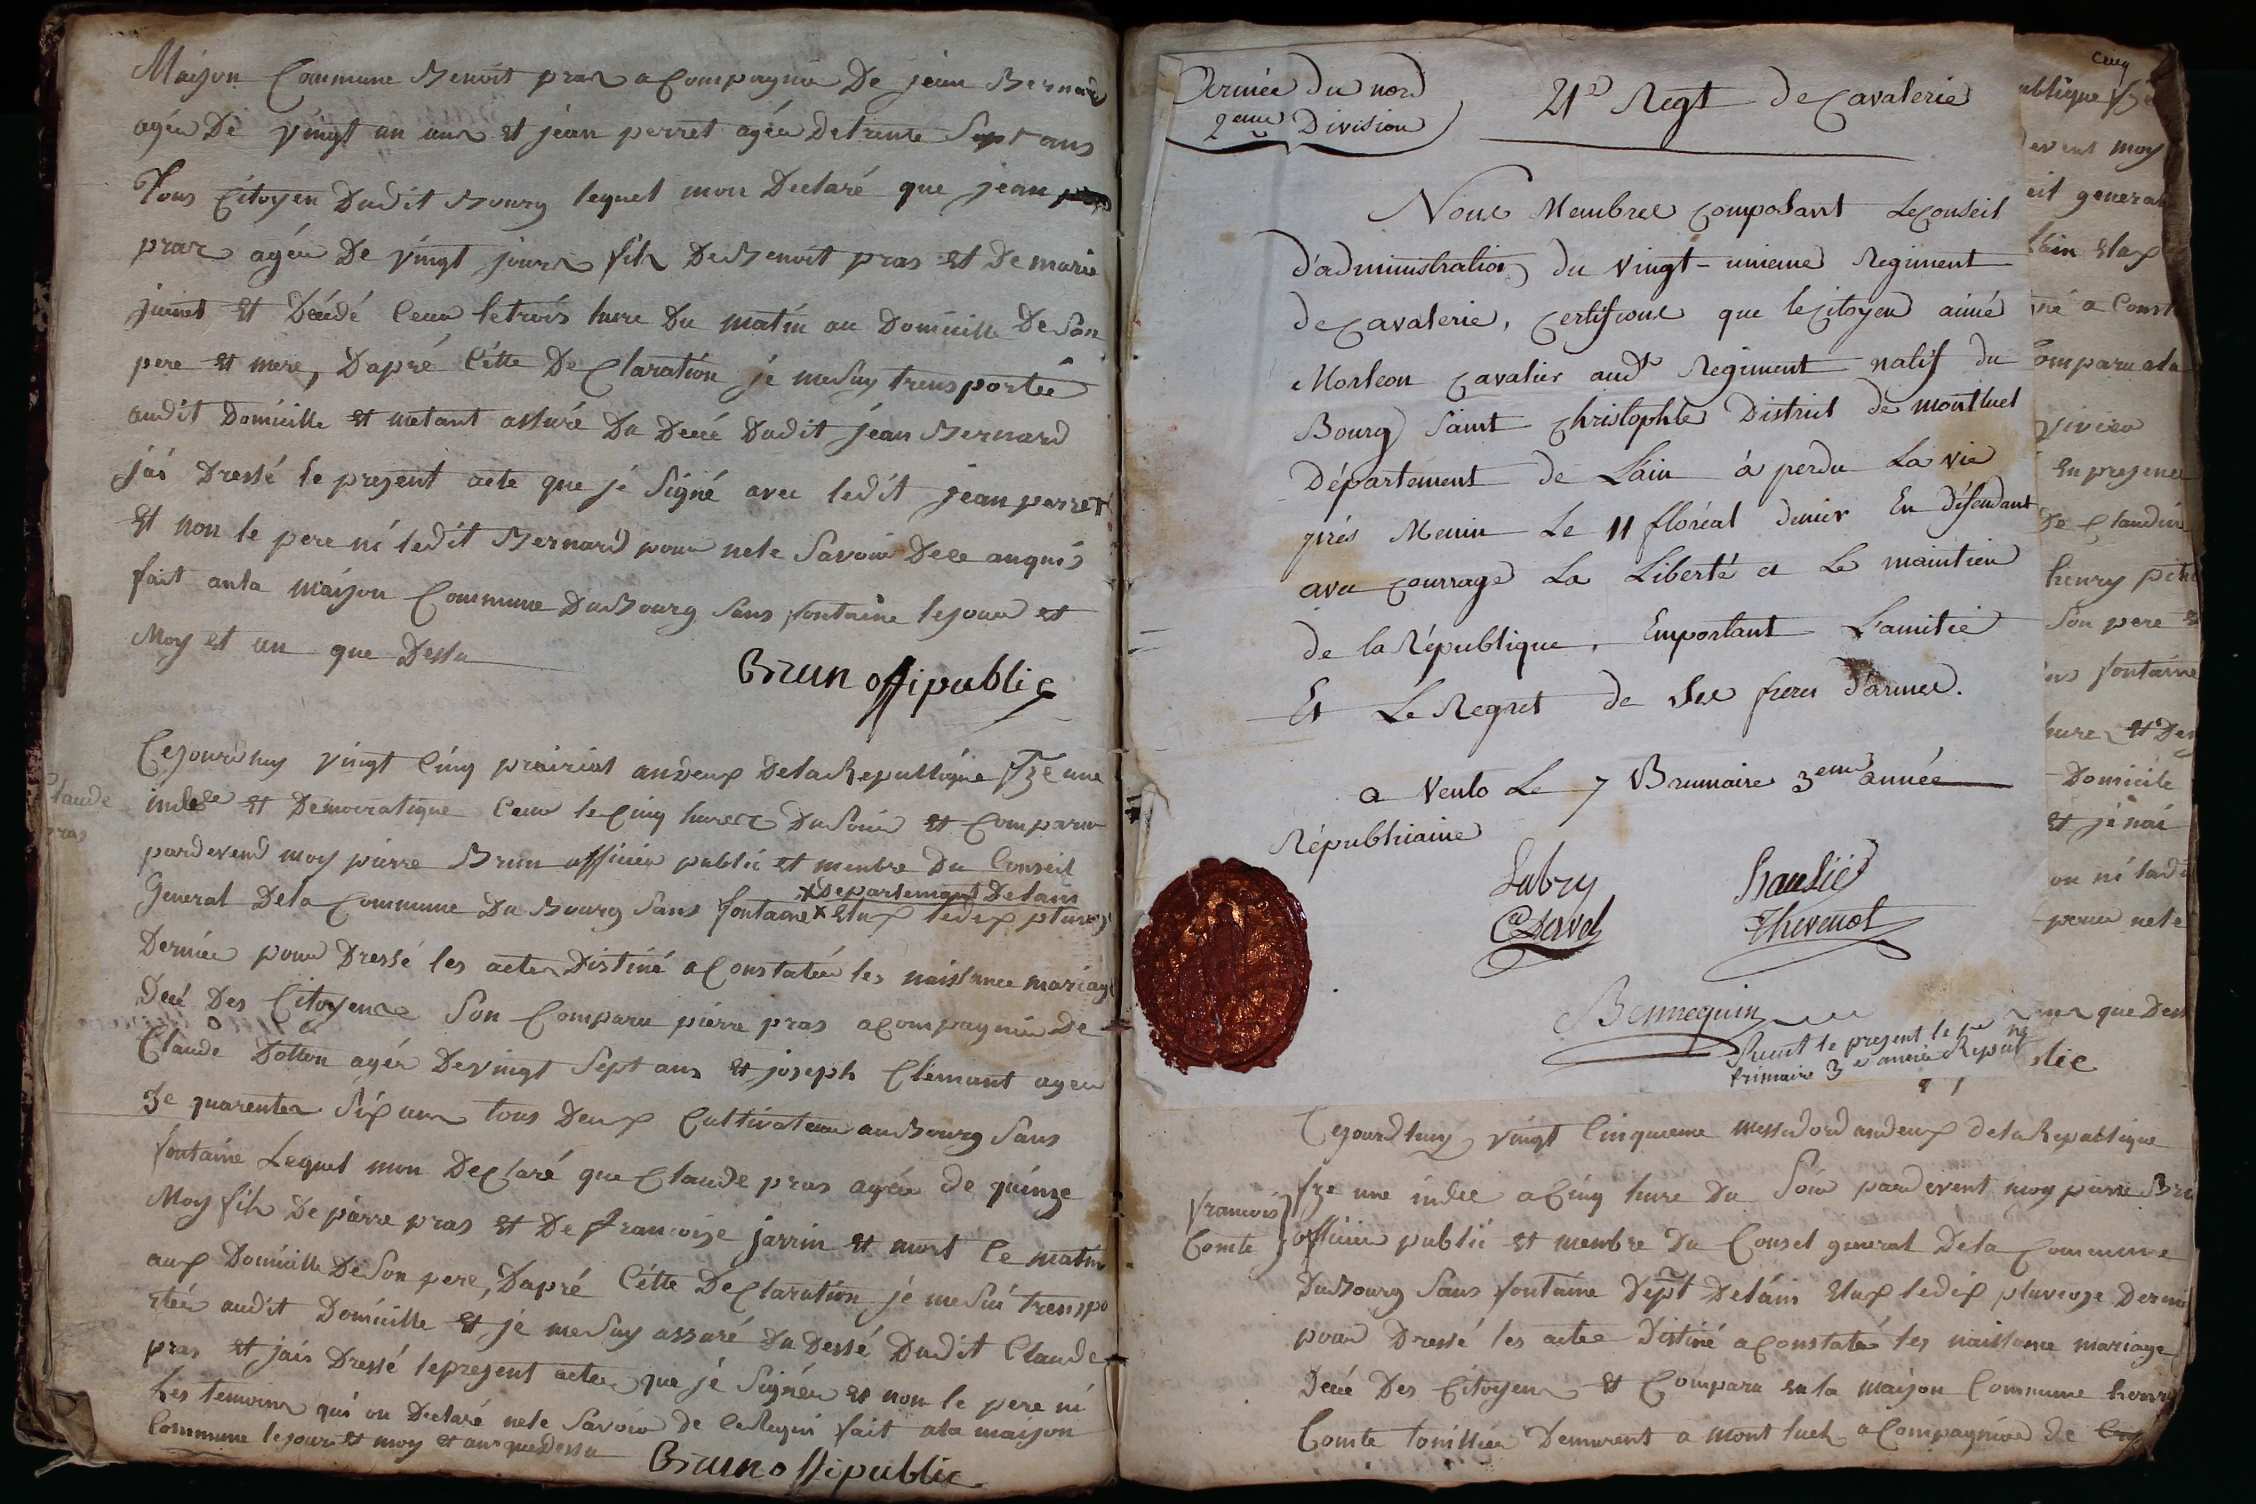 Maison Commune Benoit pras acompagnié De jean Bernard
agée De vingt un ans et jean perret agée detrente Sept ans
Tous Citoyen Dudit Bourg lequel mon Declaré que jean
pras agée De vingt jours fils De Benoit pras et De marie
juinet et Décédé Ceux letrois hure Du matin au Domicille De Son
pere et mere, Dapré Cétte DeClaration je mesuy transportée
audit Domicille et metant assuré Du Décé Dudit jean Bernard
jai Dressé le present acte que jé Signé avec ledit jean perret
Et non le pere ni ledit Bernard pour nele Savoir Dece anquis
fait anla maison Commune DuBourg Sans fontaine lejour et
Moy et an que Dessu
Brun offipublic
Claude
pras
Cejourdhuy vingt Cinq prairial andeux DelaRepublique fsze une
indee et Democratique Ceur leCinq hures Du Soir et Comparu
pardevend moy pierre Brun officier public et menbre Du Conseil
General Dela Commune Du Bourg Sans fontaine x Elux ledix pluviose
x Departemant Delain
Dernier pour Dressé les actes Distiné aConstatée les naissance mariage
Décé Des Citoyens Son Comparu pierre pras acompagnié De
Claude Dotton agée Devingt Sept ans et joseph Clémant agée
De quarentes Six ans tous Deux Cultivateur auBourg Sans
fontaine Lequel mon DeClaré que Claude pras agée de quinze
Moy fils De pierre pras et De francoise jarrin et mort Ce matin
aux Domicille De Son pere, Dapré Cétte DeClaration jé me Sui transpo
rtée audit Domicille et jé mesuy assuré Du Dessé Dudit Claude
pras et jais Dressé lepresent actes que jé Signée et non le pere ni
Les temoins qui on Declaré nele Savoir de CeRequi fait ala maison
Commune lejour et moy et an quedessu
Brun offipublic
Armée du nord
2eme Division
21e Regt de Cavalerie
Nous Membres Composant Le Conseil
d'administration du vingt-unieme Regiment
de Cavalerie, Certifions que le Citoyen aimé
Morleon Cavalier audt Regiment natif du
Bourg Saint Christophle District de montluel
Département de Lain à perdu La vie
prés Menin Le 11 floréal dernier En défendant
avec Courrage La Liberté et Le maintien
de la République, Emportant L'amitié
Et Le Regret de Ses freres d'armes.
a Venlo Le 7 Brumaire 3eme année
Républicaine
Lubry
Davel
Thevenot
Bennequin
Reunit le present le pr
frimaire 3e année Republ
cinq
ublique
devent moy
eil general
Lain Elux
omparu ala
En presence
De Claudine
henry
Son pere et
ns fontaine
hures et De
Domicile
et jé nai
on ni lad
pour nele
que Dess
blic
Cejourdhuy vingt Cinquieme messidord andeux dela Republique
fsze une indee aCinq hure Du Soir pardevent moy pierre Bru
francois
Comte
officier public et menbre Du Consel general Dela Commune
DuBourg Sans fontaine Dept Delain Elux ledix pluviose Dernie
pour Dressé les actes Distiné aConstatée les naissance mariage
Décé Des Citoyens et Comparu enla maison Commune henry
Comte tonillier Demurent a mont luel aCompagniée de